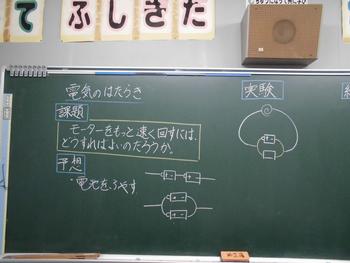 てふしきた
電気のはたらき
課題
モーターをもっと速く回すには、
どうすればよいのだろうか。
予想
・電池をふやす
実験